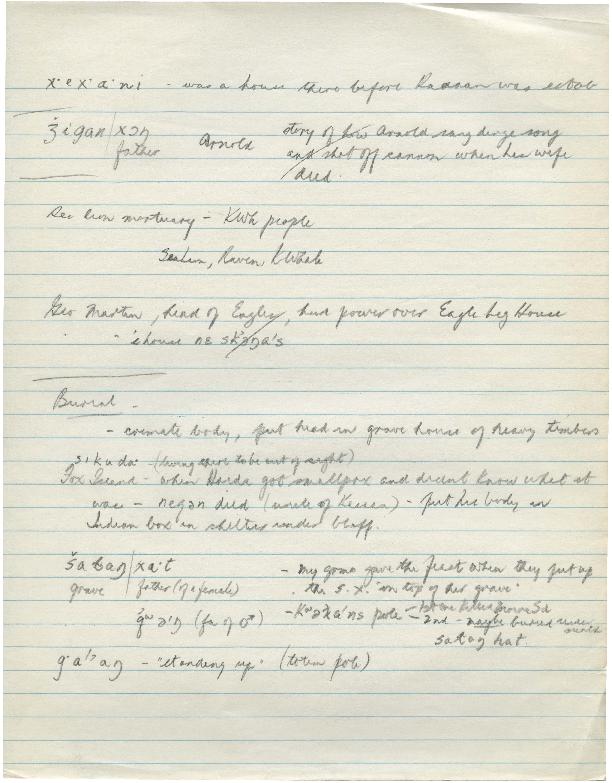 x·ex·a·ni - was a house there before Kasaan was estab
ǯigan/xəŋ Arnold story of how Arnold sang dirge song
father and shot off cannon when his wife
died.
Sea lion mortuary - KWh people
Sea Lion, Raven KWhale
Geo Martin, head of Eagles, had power over Eagle Leg House
" 's house ne
Burial -
- cremate body, put head in grave house of heavy timbers
sikuda· (being there to be out of sight)
Fox Island - when Haida got smallpox and didn't know what it
was - negən died (uncle of ) - put his body in
Indian box in shelter under bluff.
šataŋ/xa·t - my grma gave the feast when they put up
grave father (of a female) the s.x. "on top of her grave"
(fa of ♂) - pole - 1st one Killer
2nd - maybe buried under
sataŋ hat.
g·a'ʔaŋ - "standing up" (totem pole)